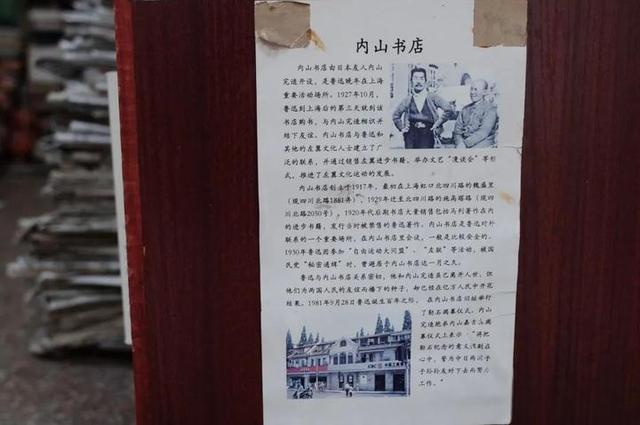 内山书店
内山书店由日本友人内山
完造开设，是鲁迅晚年在上海
重要活动场所。1927年10月，
鲁迅到上海后的第三天就到该
书店购书，与内山完造相识并
结下友谊。内山书店与鲁迅和
其他的左翼文化人士建立了广
泛的联系，并通过销售左翼进步书籍，举办文艺“漫谈会”等形
式，推进了左翼文化运动的发展。
内山书店创立于1917年，最初在上海虹口北四川路的魏盛里
（现四川北路1881弄），1929年迁至北四川路的施高塔路（现四
川北路2050号），1920年代后期书店大量销售包括马列著作在内
的进步书籍，发行当时被禁售的鲁迅著作。内山书店是鲁迅对外
联系的一个重要场所，在内山书店里会谈，一般是比较安全的。
1930年鲁迅因参加“自由运动大同盟”、“左联”等活动，被国
民党“秘密通缉”时，曾避居于内山书店达一月之久。
鲁迅与内山书店关系密切，他和内山完造虽已离开人世，但
他们为两国人民的友谊而播下的种子，却已经在亿万人民中开花
结果。1981年9月28日鲁迅诞生百年之际，在内山书店旧址举行
了勒石揭幕仪式，内山
完造胞弟内山嘉吉在揭
幕仪式上表示：“将把
勒石纪念的意义镌刻在
心中，誓为中日两国子子
孙孙友好下去而努力
工作。”